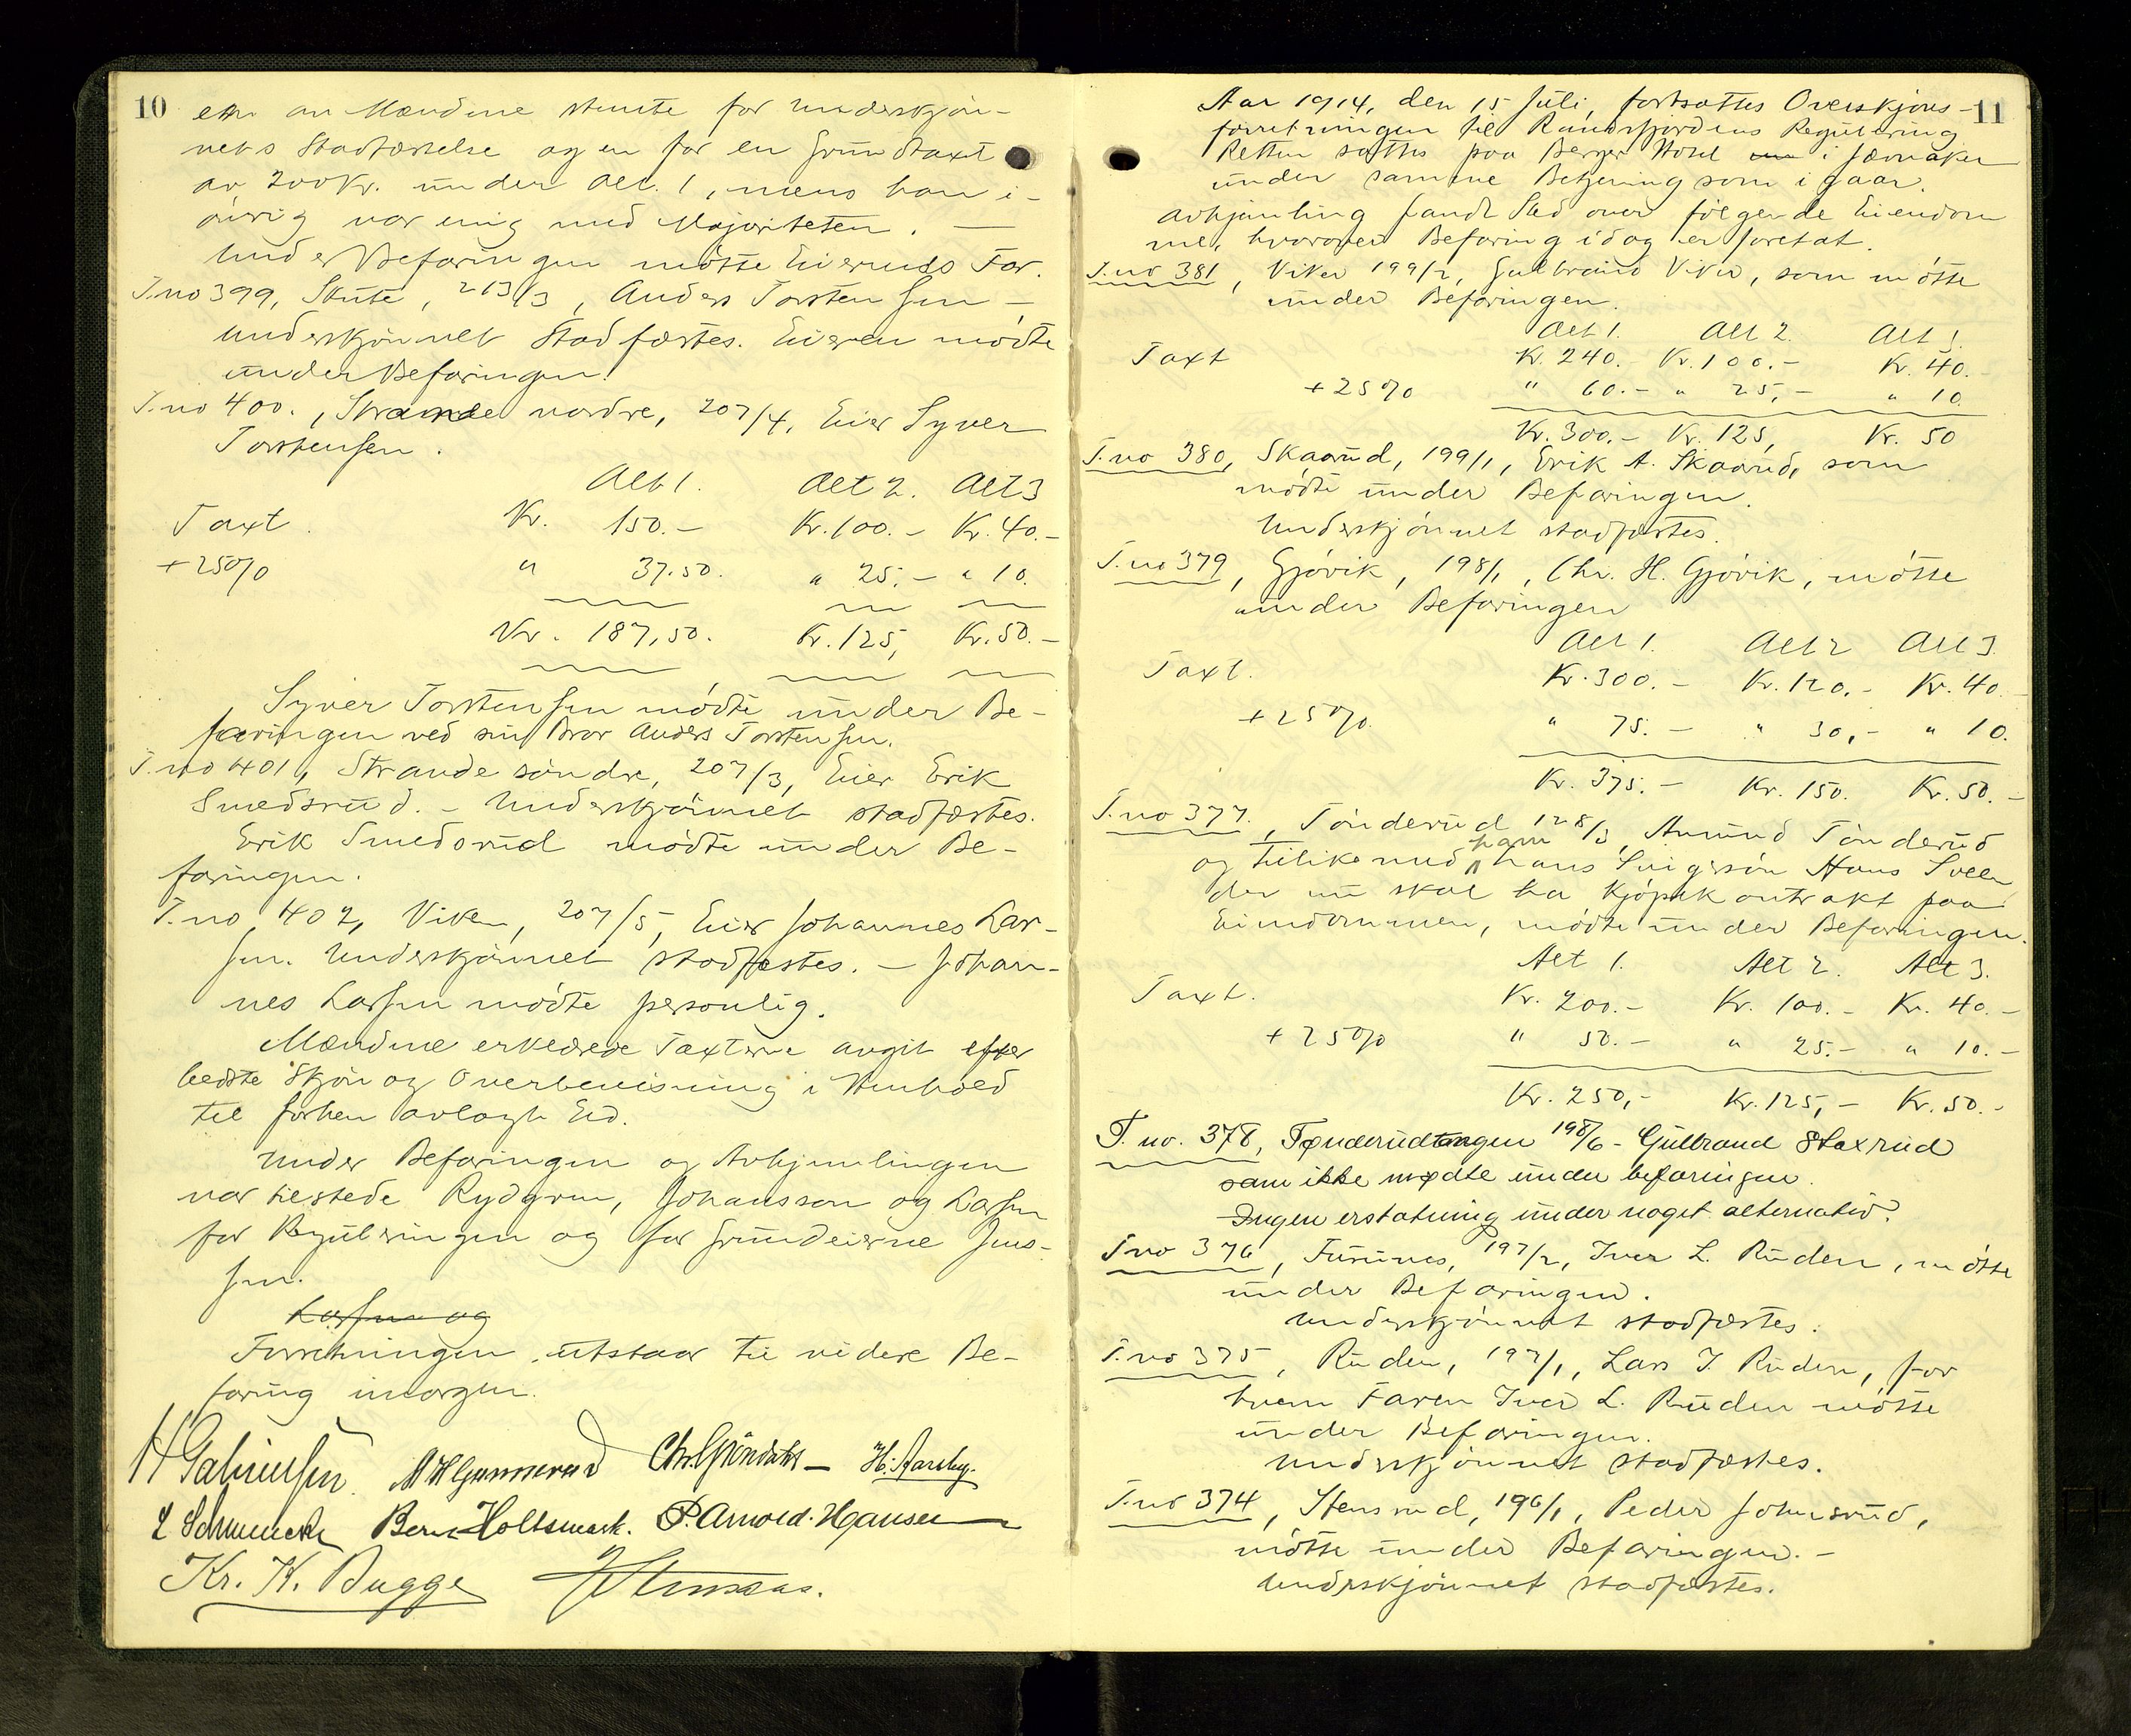 10
en av Mændene stemte for Underskjøn-
nets Stadfæstelse og en for en Grundtaxt
av 200 Kr. under Alt. 1, mens han i-
øvrig var enig med Majoriteten. —
Under Befaringen mötte Eierens Far.
T.no 399, Skute, 213/3, Anders Torstensen —
Underskjönnet Stadfæstes. Eieren mödte
under Befaringen.
T.no 400., Strande nordre, 207/4, Eier Syver
Torstensen.
Alt 1. Alt 2. Alt 3
Taxt. Kr. 150.- Kr. 100.- Kr. 40.-
+ 25% " 37.50. " 25.- " 10.
Kr. 187,50. Kr. 125, Kr. 50.-
Syver Torstensen mödte under Be-
faringen ved sin Bror Anders Torstensen.
T.no 401, Strande söndre, 207/3, Eier Erik
Smedsrud. - Underskjönnet stadfæstes.
Erik Smedsrud mödte under Be-
faringen.
T.no 402, Viken, 207/5, Eier Johannes Lar-
sen. Underskjönnet stadfæstes. — Johan-
nes Larsen mödte personlig.
Mændene erklærede Taxterne avgit efter
bedste Skjön og Overbevisning i Henhold
til forhen avlagt Ed.
Under Befaringen og Avhjemlingen
var tilstede Rydgren, Johansson og Larsen
for Reguleringen og for Grundeierne Jens-
sen.
Larsen og
Forretningen utstaar til videre Be-
faring imorgen.
H Gabrielsen. M H Gunnerud Chr. Gröndahl — H. Aarsby.
L Schmucke Bernt Holtsmark. P. Arnold-Hansen
Kr. K. Bugge
11
Aar 1914, den 15 Juli, fortsattes Overskjöns-
forretningen til Randsfjordens Regulering
Retten sattes paa Berger Hotel i Jevnaker
under samme Betjening som i gaar.
Avhjemling fandt Sted over følgende Eiendom
me, hvorover Befaring idag er foretat.
T.no 381, Viker 199/2, Gulbrand Viker, som mötte
under Befaringen.
Alt 1. Alt 2. Alt 3.
Taxt Kr. 240.- Kr. 100.- Kr. 40.-
+ 25% " 60.- " 25,- " 10
Kr. 300.- Kr. 125, Kr. 50
T.no 380, Skaarud, 199/1, Erik A. Skaarud, som
mödte under Befaringen.
Underskjönnet stadfæstes.
T.no 379, Gjövik, 198/1, Chr. H. Gjövik, mötte
under Befaringen
Alt 1. Alt 2 Alt 3.
Taxt. Kr. 300.- Kr. 120.- Kr. 40.-
+ 25%. " 75.- " 30,- " 10.
Kr. 375.- Kr. 150. Kr. 50.-
T.no 377., Tönderud 128/3, Amund Tönderud
og tillikemed ham hans Svigersön Hans Sveen
der nu skal ha Kjöpekontrakt paa
Eiendommen, mödte under Befaringen.
Alt 1. Alt 2. Alt 3.
Taxt. Kr. 200.- Kr. 100.- Kr. 40.-
+ 25% " 50.- " 25.- " 10.-
Kr. 250,- Kr. 125,- Kr. 50.-
T. no. 378, Tønderudtangen 198/6 - Gulbrand Staxrud
som ikke mødte under befaringen.
Ingen erstatning under noget alternativ.
T no 376, Furunes, 197/2, Iver L. Ruden, mötte
under Befaringen.
Underskjönnet stadfæstes.
T.no 375, Ruden, 197/1, Lars I. Ruden, for
hvem Faren Iver L. Ruden mötte
under Befaringen.
Underskjönnet stadfæstes.
T.no 374, Stensrud, 196/1, Peder Johnsrud,
mötte under Befaringen. -
Underskjönnet stadfæstes.